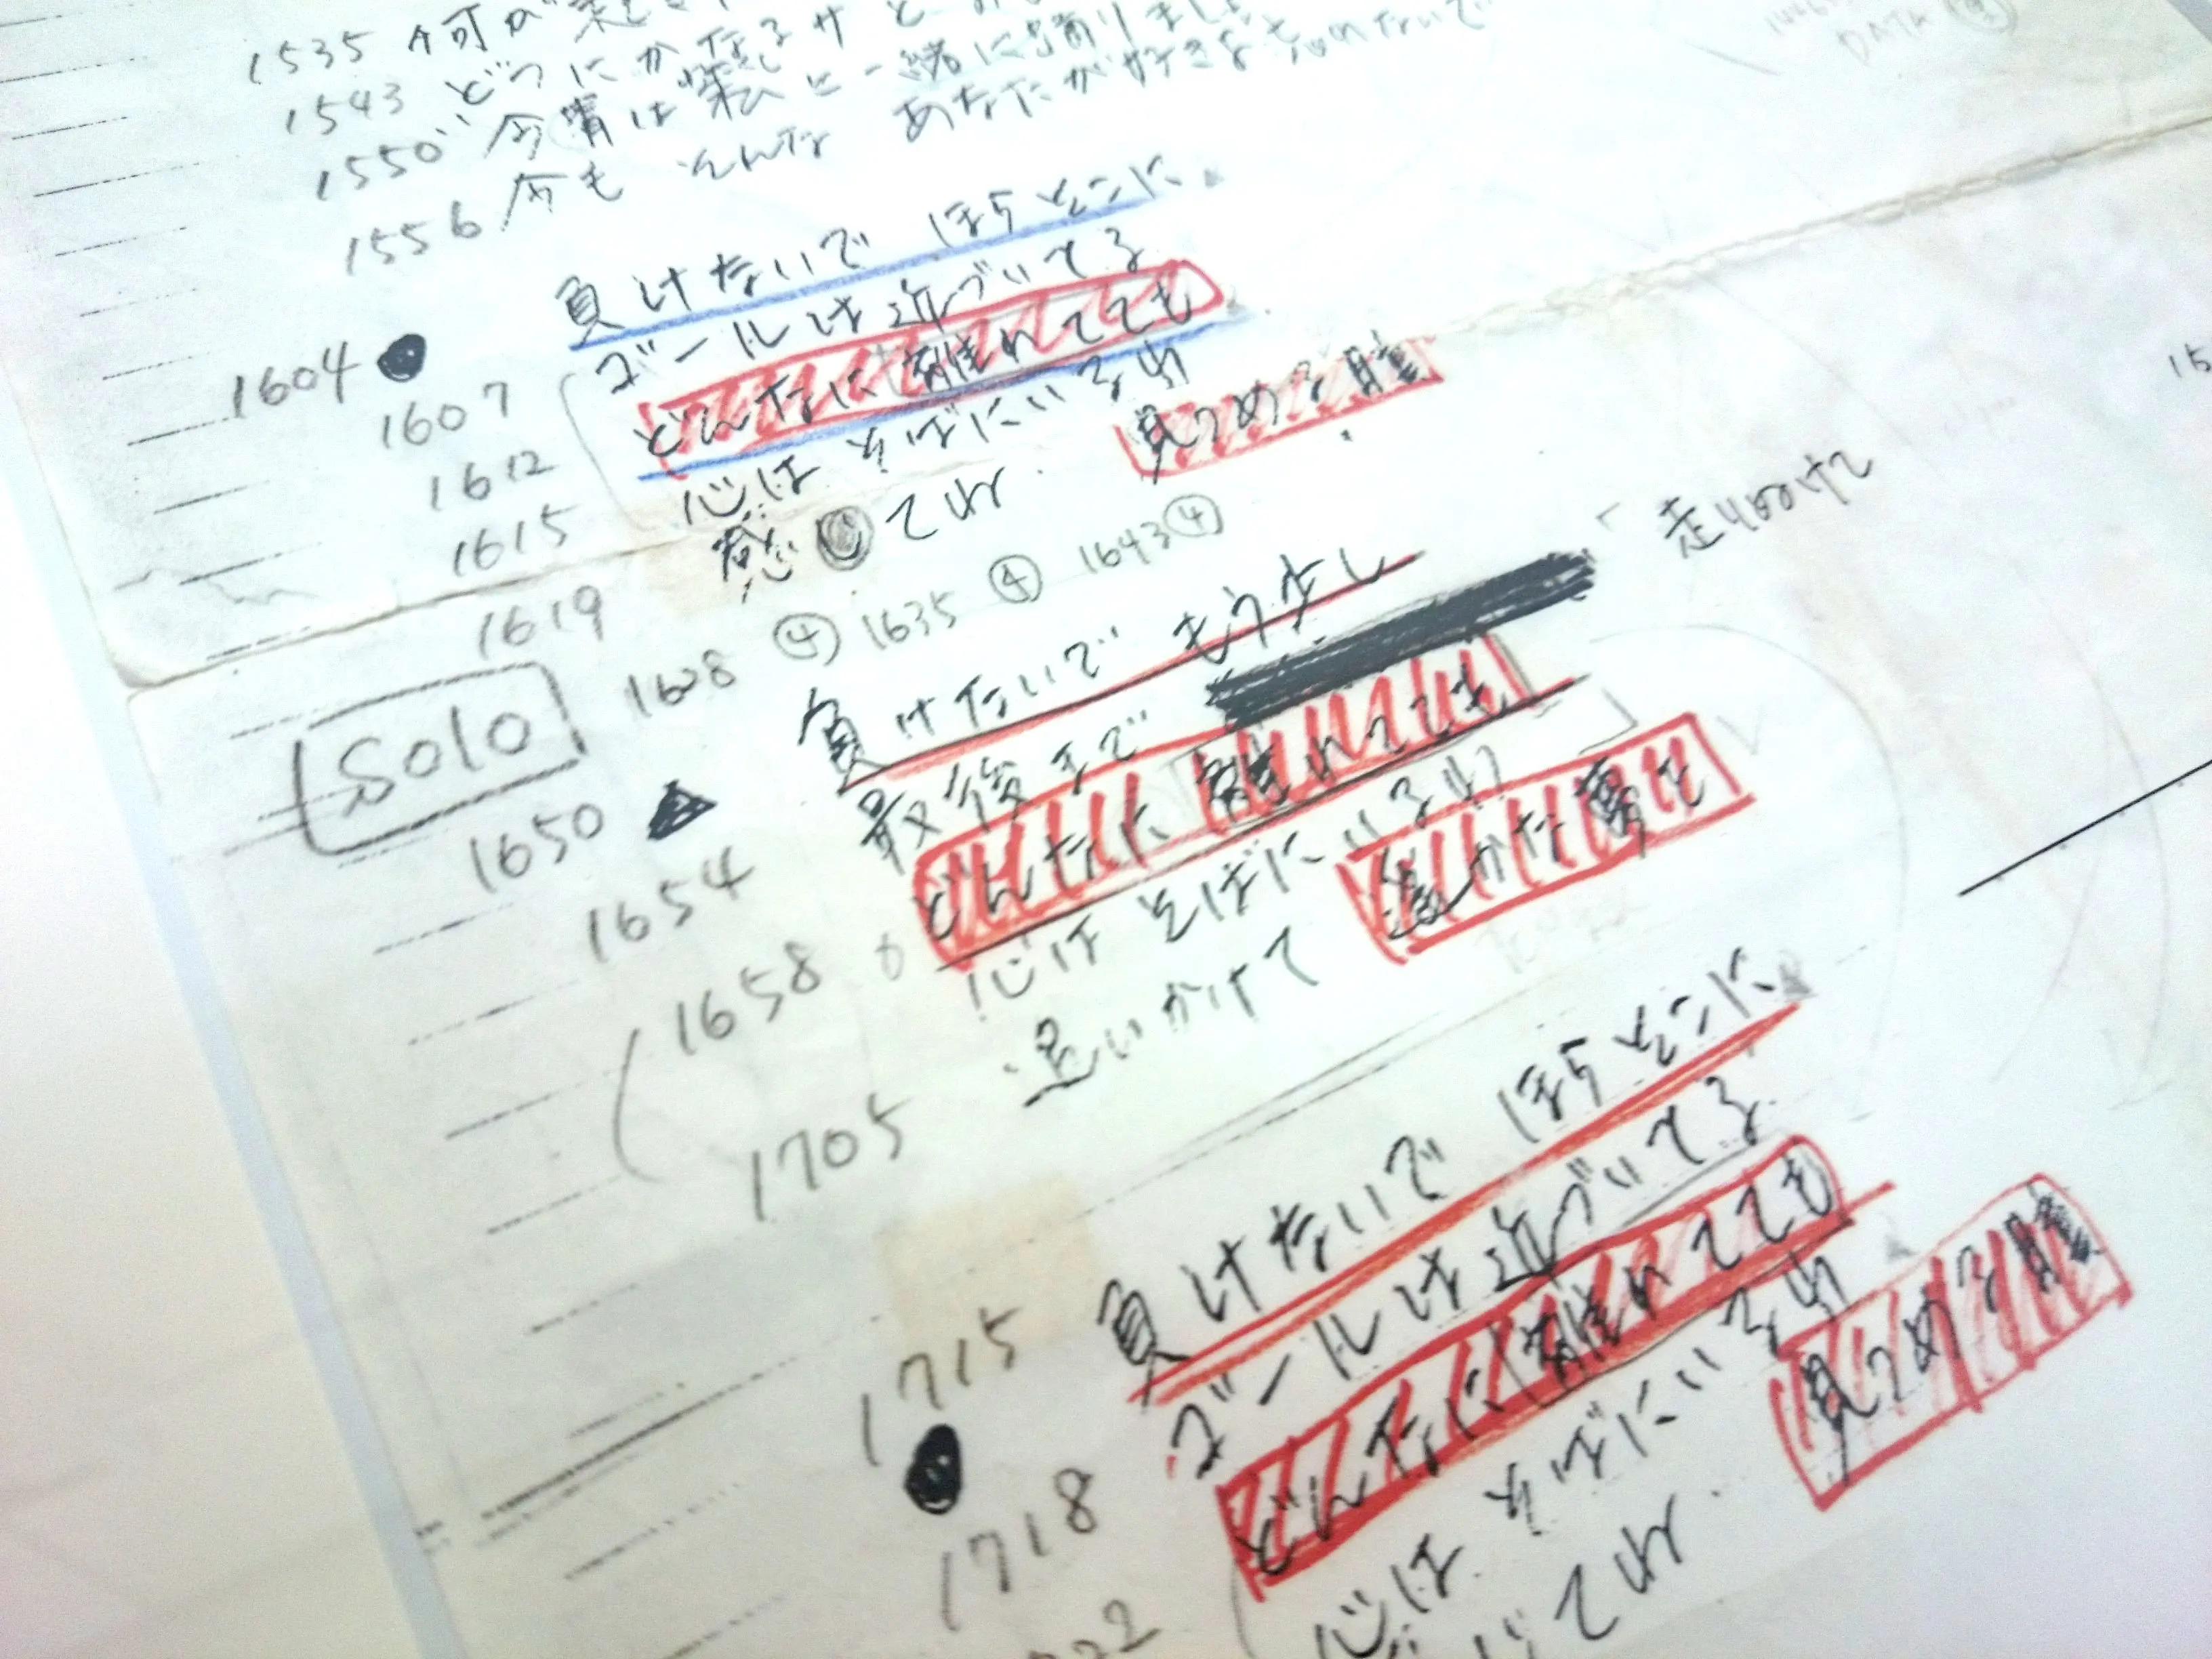 1535 何が
1543 どうにかなるサと
1550 今宵は私と一緒に踊りましょ
1556 今も そんな あなたが好きよ 忘れないで
DATA
1604 負けないで ほらそこに
1607 ゴールは近づいてる
1612 どんなに離れてても
1615 心は そばにいるわ
1619 感 てね 見つめる瞳
Solo 1628 ④ 1635 ④ 1643 ④
1650 負けないで もう少し
1654 最後まで 走り抜けて
1658 どんなに 離れてても
心は そばにいるわ
1705 追いかけて 遥かな夢を
1715 負けないで ほらそこに
1718 ゴールは近づいてる
どんなに離れてても
心は そばにいるわ
てね 見つめる瞳